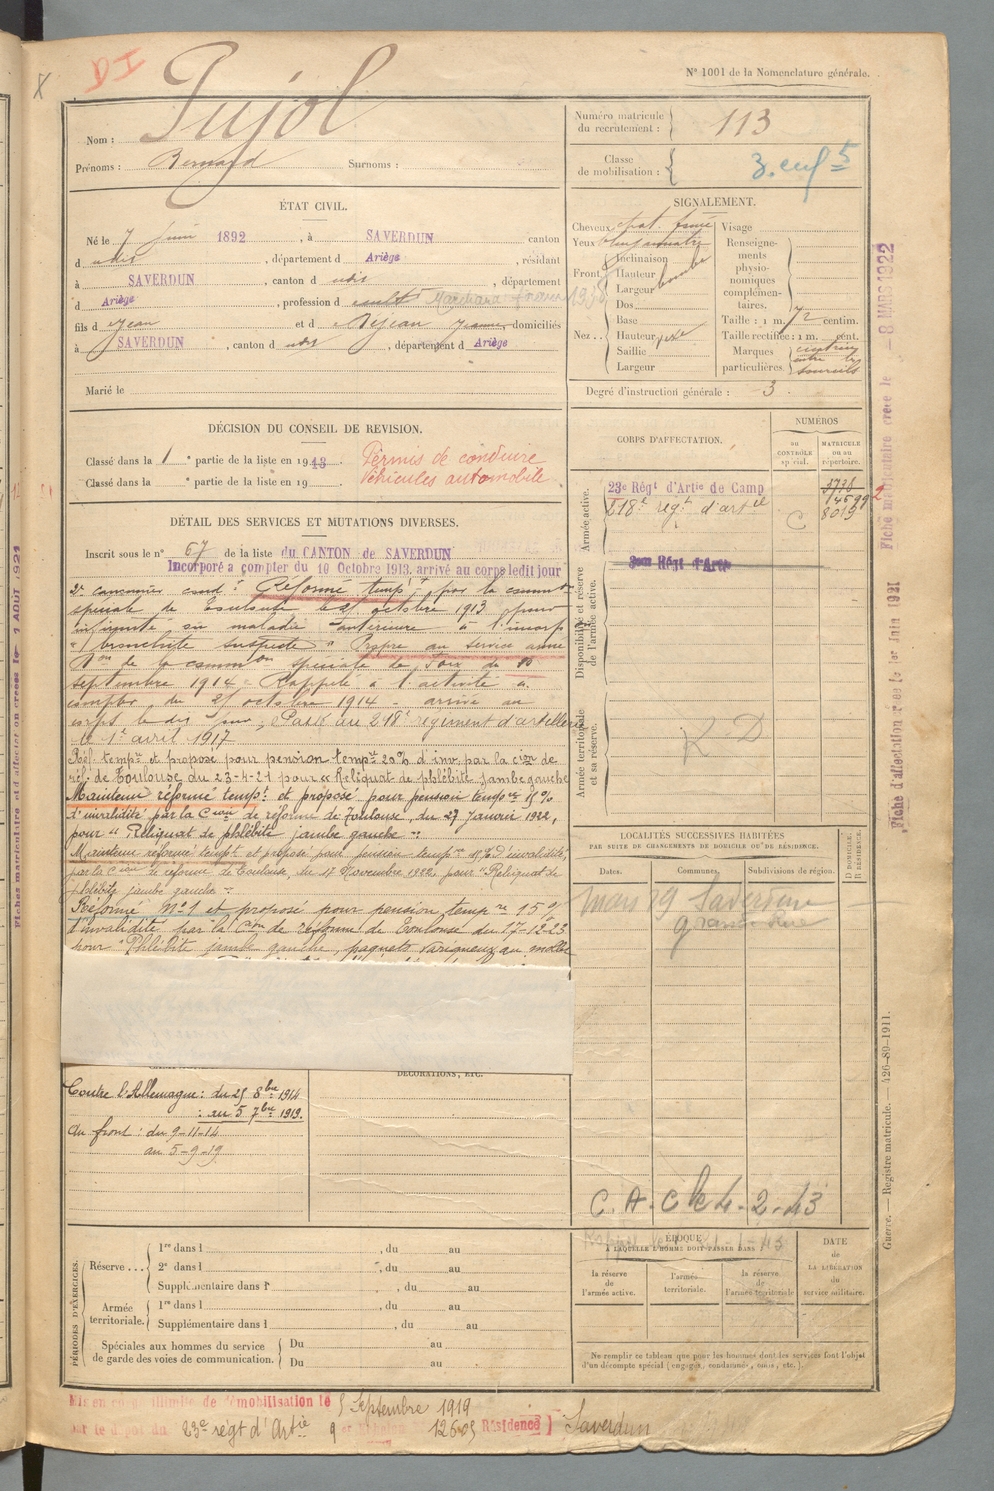 DI
N° 1001 de la Nomenclature générale.
Nom : Pujol
Prénoms : Bernard Surnoms :
Numéro matricule du recrutement : 113
Classe de mobilisation :
ÉTAT CIVIL.
Né le 7 juin 1892, à SAVERDUN canton
d udis, département d Ariège, résidant
à SAVERDUN, canton de udis, département
d Ariège, profession de cult
fils de Jean et de Dejean Jeanne domiciliés
à SAVERDUN, canton d udis, département d Ariège
Marié le
SIGNALEMENT.
Cheveux chat. foncé
Yeux
Front Inclinaison
Hauteur
Largeur bombé
Nez Dos
Base
Hauteur
Saillie
Largeur
Visage
Renseignements physionomiques complémentaires.
Taille : 1 m. 72 centim.
Taille rectifiée : 1 m. cent.
Marques particulières. cicatrice entre les sourcils
Degré d'instruction générale : 3
DÉCISION DU CONSEIL DE REVISION.
Classé dans la 1e partie de la liste en 1913.
Classé dans la e partie de la liste en 19
Permis de conduire
Véhicules automobile
DÉTAIL DES SERVICES ET MUTATIONS DIVERSES.
Inscrit sous le n° 67 de la liste du CANTON de SAVERDUN
Incorporé a compter du 10 Octobre 1913, arrivé au corps ledit jour
2e canonnier cond. Réformé temp. par la comm.on
spéciale de Toulouse le 21 octobre 1913 pour
infirmité ou maladie antérieure à l'incorp.
"bronchite suspecte" Propre au service armé
Don de la commion spéciale de Foix du 10
septembre 1914 - Rappelé à l'activité à
compter du 25 octobre 1914 - arrivé au
corps le dit jour, Passé au 218e régiment d'artillerie
le 1er avril 1917
Réf. tempre et proposé pour pension tempre 20% d'inv. par la cion de
réf. de Toulouse du 23-4-21 pour "Reliquat de phlébite jambe gauche
Maintenu réformé temp.t et proposé pour pension tempre 15%
d'invalidité par la Cion de réforme de Toulouse, du 27 Janvier 1922,
pour "Reliquat de phlébite jambe gauche"
Maintenu réformé tempt et proposé pour pension tempre 15% d'invalidité,
par la Cion de réforme de Toulouse, du 17 Novembre 1922, pour "Reliquat de
phlébite jambe gauche"
Réformé N°1 et proposé pour pension tempre 15%
d'invalidité par la Cion de réforme de Toulouse du 17-12-23
pour "Phlébite jambe gauche, paquets variqueux au mollet
DÉCORATIONS, ETC.
Contre l'Allemagne : du 25 8bre 1914
: au 5 7bre 1919.
Au front : du 9-11-14
au 5-9-19
CORPS D'AFFECTATION.
NUMÉROS
AU CONTRÔLE spécial.
MATRICULE ou au répertoire.
Armée active.
23e Régt d'Artie de Camp
218e régt d'artie
C 8019
Disponibilité et réserve de l'armée active.
Armée territoriale et sa réserve.
LOCALITÉS SUCCESSIVES HABITÉES
PAR SUITE DE CHANGEMENTS DE DOMICILE OU DE RÉSIDENCE.
Dates. Communes. Subdivisions de région. D DOMICILE. R RÉSIDENCE.
mars 19 Saverdun
Grande Rue
C. A. C le 4-2-43
ÉPOQUE
À LAQUELLE L'HOMME DOIT PASSER DANS :
la réserve de l'armée active.
l'armée territoriale.
la réserve de l'armée territoriale
DATE de LA LIBÉRATION du service militaire.
Ne remplir ce tableau que pour les hommes dont les services font l'objet
d'un décompte spécial (engagés, condamnés, omis, etc.).
PÉRIODES D'EXERCICES.
Réserve ... 1re dans l , du au
2e dans l , du au
Supplémentaire dans l , du au
Armée territoriale. 1re dans l , du au
Supplémentaire dans l , du au
Spéciales aux hommes du service de garde des voies de communication. Du au
Du au
Mis en congé illimité de démobilisation le 5 Septembre 1919
par le dépôt du 23e régt d'Artie 9er Echelon Résidence ) Saverdun
Fiche matriculaire créée le - 8 MARS 1922
Fiche d'affectation créée le 1er Juin 1921
Guerre. — Registre matricule. — 426-89-1911.
Fiches matriculaire et d'affectation créées le 1 AOUT 1921